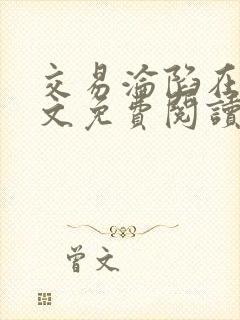 交易淪陷在
文免費閱讀
曾文